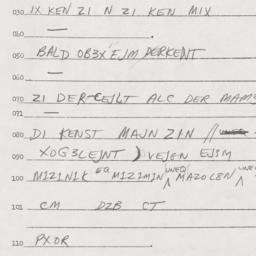 030 IX KEN ZI N ZI KEN MIX
040
BALD OB3X EJM DERKENT
060
070 ZI DER CEILT ALC DER MAME
071
080 DI KENST MAJN ZIN //
090 XOG3LEJNT ) VEJEN EJSM
100 MIZINIK EQ MIZIMIN UNEQ MAZOLBN UNEQ
101 CM DZB CT
110 PXOR